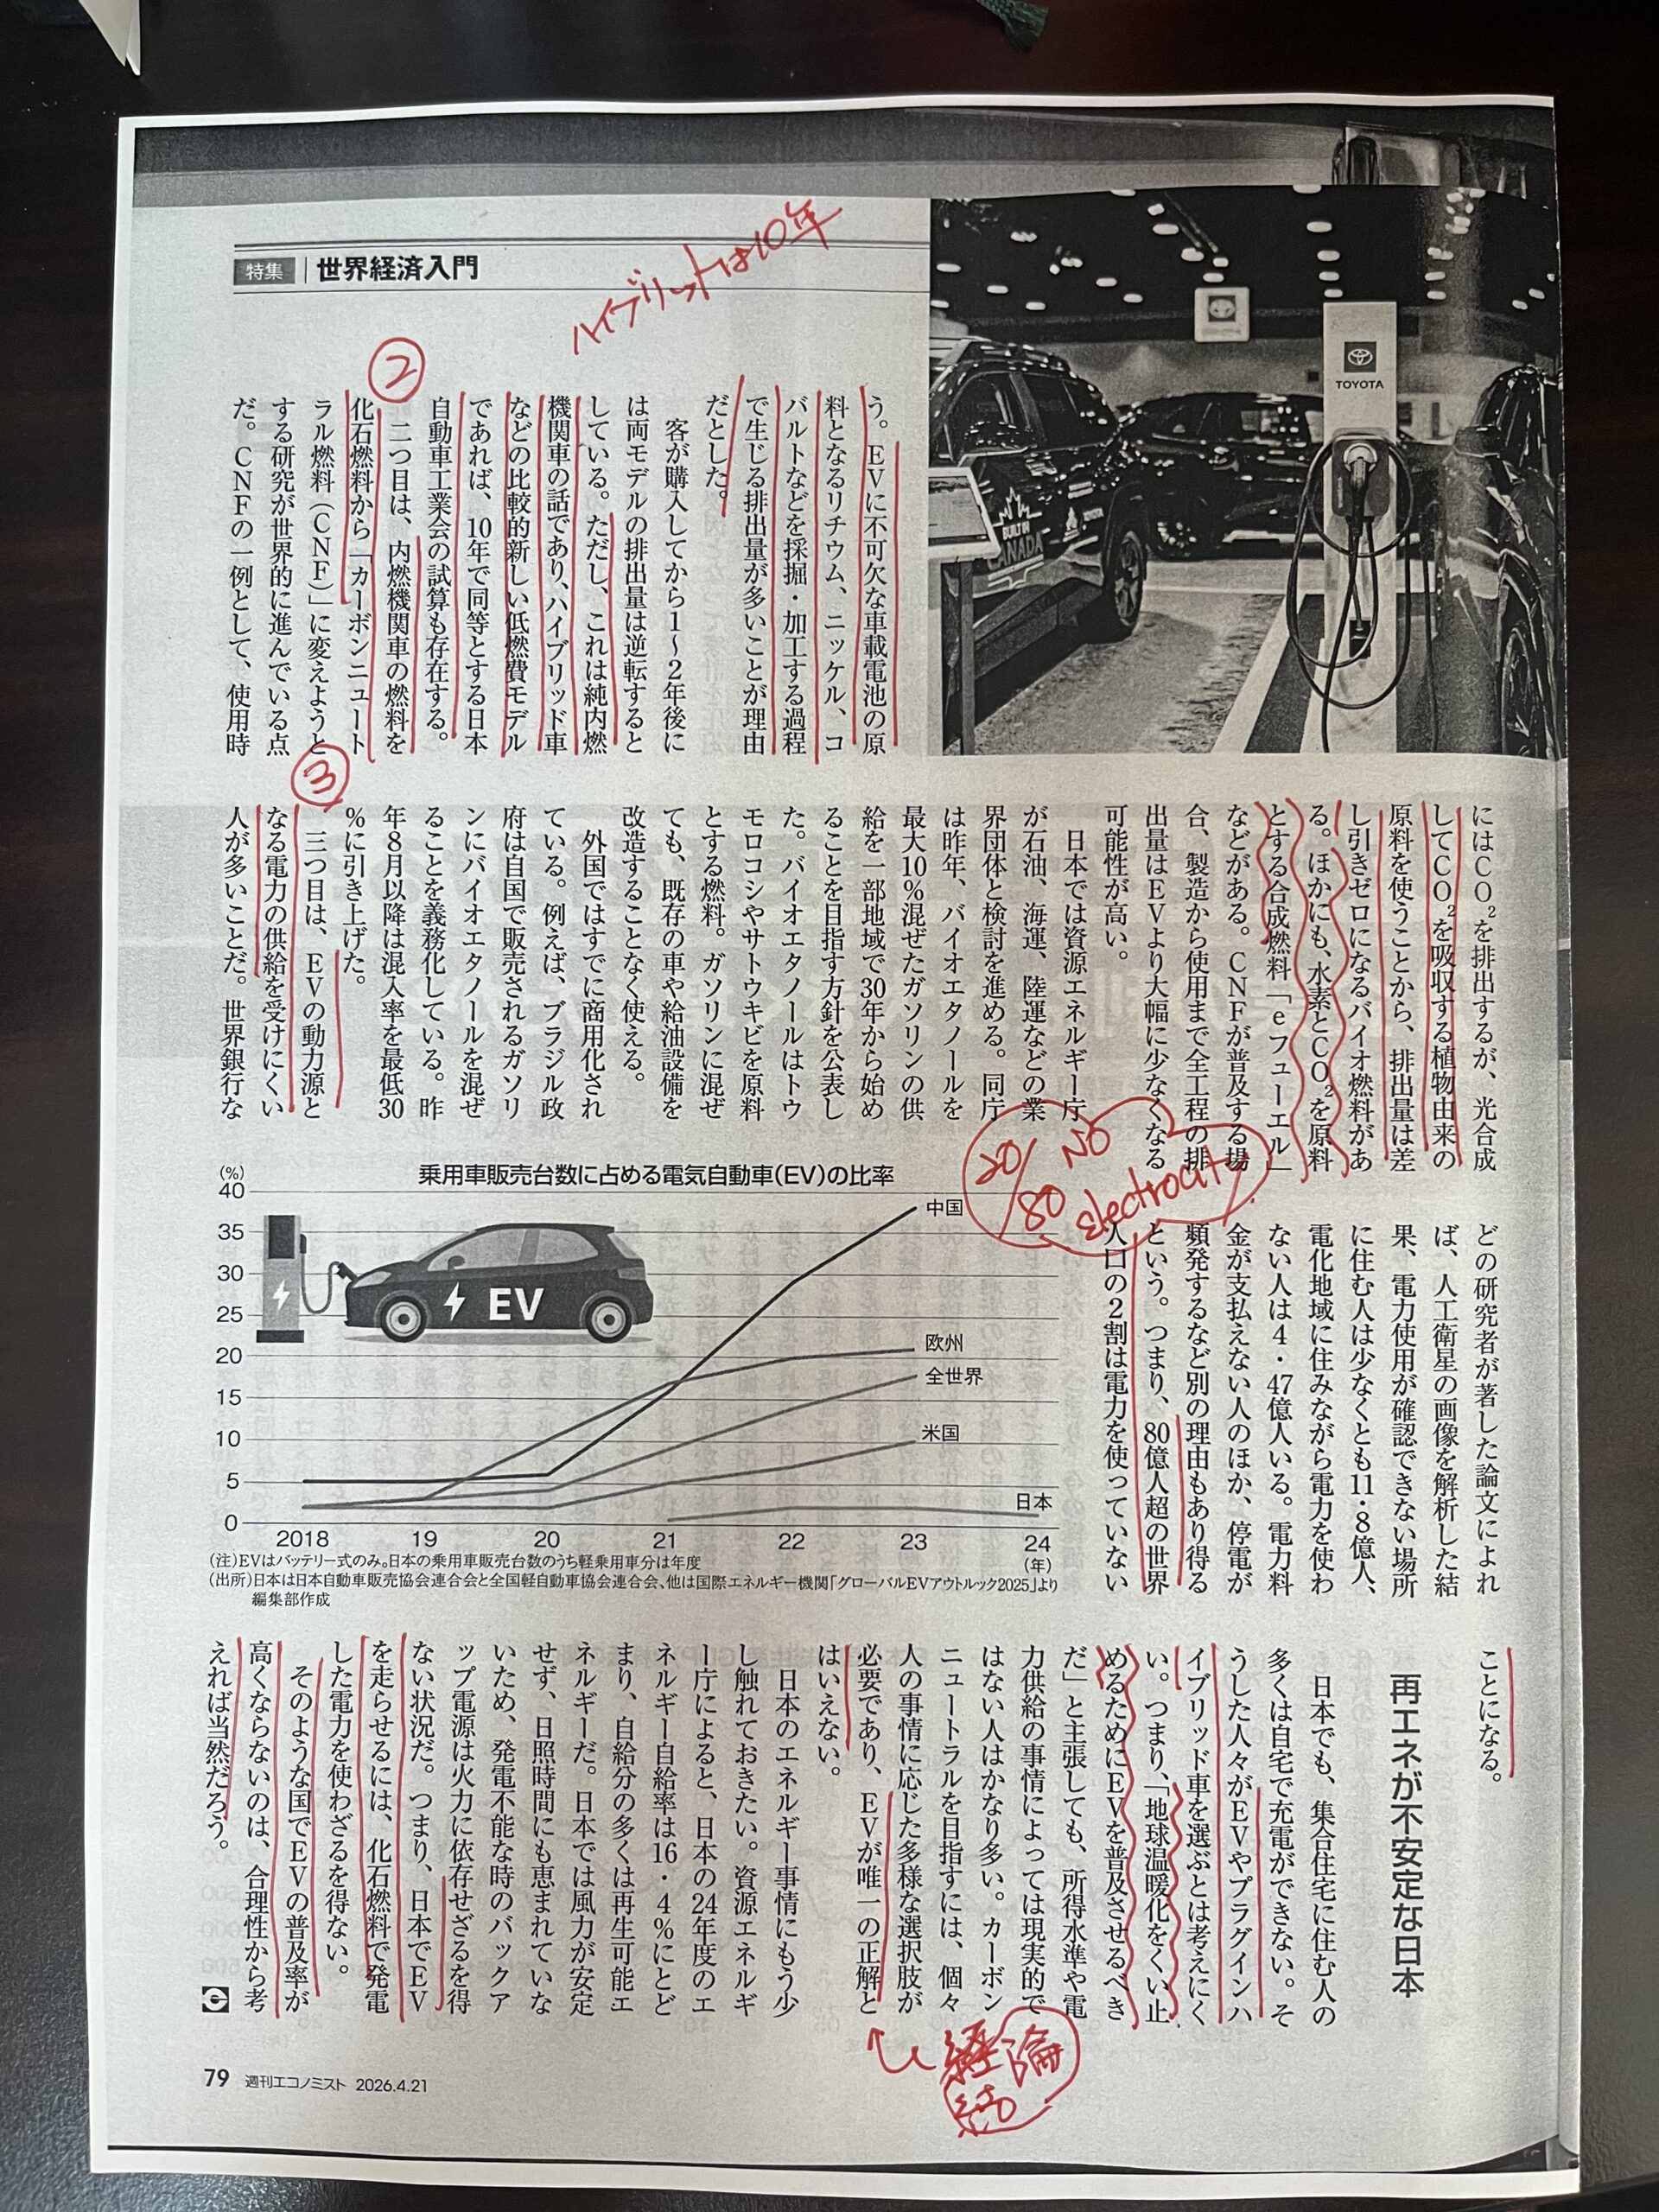 特集 世界経済入門
ハイブリットは10年
TOYOTA
BUILT IN
CANADA
う。EVに不可欠な車載電池の原
料となるリチウム、ニッケル、コ
バルトなどを採掘・加工する過程
で生じる排出量が多いことが理由
だとした。
客が購入してから1～2年後に
は両モデルの排出量は逆転すると
している。ただし、これは純内燃
機関車の話であり、ハイブリッド車
などの比較的新しい低燃費モデル
であれば、10年で同等とする日本
自動車工業会の試算も存在する。
②
二つ目は、内燃機関車の燃料を
化石燃料から「カーボンニュート
ラル燃料（CNF）」に変えようと
する研究が世界的に進んでいる点
だ。CNFの一例として、使用時
にはCO₂を排出するが、光合成
してCO₂を吸収する植物由来の
原料を使うことから、排出量は差
し引きゼロになるバイオ燃料があ
る。ほかにも、水素とCO₂を原料
とする合成燃料「eフューエル」
などがある。CNFが普及する場
合、製造から使用まで全工程の排
出量はEVより大幅に少なくなる
可能性が高い。
日本では資源エネルギー庁
が石油、海運、陸運などの業
界団体と検討を進める。同庁
は昨年、バイオエタノールを
最大10％混ぜたガソリンの供
給を一部地域で30年から始め
ることを目指す方針を公表し
た。バイオエタノールはトウ
モロコシやサトウキビを原料
とする燃料。ガソリンに混ぜ
ても、既存の車や給油設備を
改造することなく使える。
外国ではすでに商用化され
ている。例えば、ブラジル政
府は自国で販売されるガソリ
ンにバイオエタノールを混ぜ
ることを義務化している。昨
年8月以降は混入率を最低30
％に引き上げた。
③
三つ目は、EVの動力源と
なる電力の供給を受けにくい
人が多いことだ。世界銀行な
20/80 NO
electrocity
どの研究者が著した論文によれ
ば、人工衛星の画像を解析した結
果、電力使用が確認できない場所
に住む人は少なくとも11・8億人、
電化地域に住みながら電力を使わ
ない人は4・47億人いる。電力料
金が支払えない人のほか、停電が
頻発するなど別の理由もあり得る
という。つまり、80億人超の世界
人口の2割は電力を使っていない
ことになる。
乗用車販売台数に占める電気自動車（EV）の比率
(%)
40
35
30
25
20
15
10
5
0
EV
中国
欧州
全世界
米国
日本
2018 19 20 21 22 23 24
(年)
（注）EVはバッテリー式のみ。日本の乗用車販売台数のうち軽乗用車分は年度
（出所）日本は日本自動車販売協会連合会と全国軽自動車協会連合会、他は国際エネルギー機関「グローバルEVアウトルック2025」より
編集部作成
再エネが不安定な日本
日本でも、集合住宅に住む人の
多くは自宅で充電ができない。そ
うした人々がEVやプラグインハ
イブリッド車を選ぶとは考えにく
い。つまり、「地球温暖化をくい止
めるためにEVを普及させるべき
だ」と主張しても、所得水準や電
力供給の事情によっては現実的で
はない人はかなり多い。カーボン
ニュートラルを目指すには、個々
人の事情に応じた多様な選択肢が
必要であり、EVが唯一の正解と
はいえない。
日本のエネルギー事情にもう少
し触れておきたい。資源エネルギ
ー庁によると、日本の24年度のエ
ネルギー自給率は16・4％にとど
まり、自給分の多くは再生可能エ
ネルギーだ。日本では風力が安定
せず、日照時間にも恵まれていな
いため、発電不能な時のバックア
ップ電源は火力に依存せざるを得
ない状況だ。つまり、日本でEV
を走らせるには、化石燃料で発電
した電力を使わざるを得ない。
そのような国でEVの普及率が
高くならないのは、合理性から考
えれば当然だろう。
論
結
79 週刊エコノミスト 2026.4.21